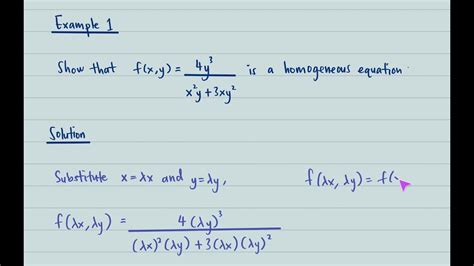 Example 1
Show that f(x,y) = 4y³ / x²y + 3xy² is a homogeneous equation.
Solution
Substitute x = λx and y = λy, f(λx, λy) = f(
f(λx, λy) = 4(λy)³ / (λx)²(λy) + 3(λx)(λy)²